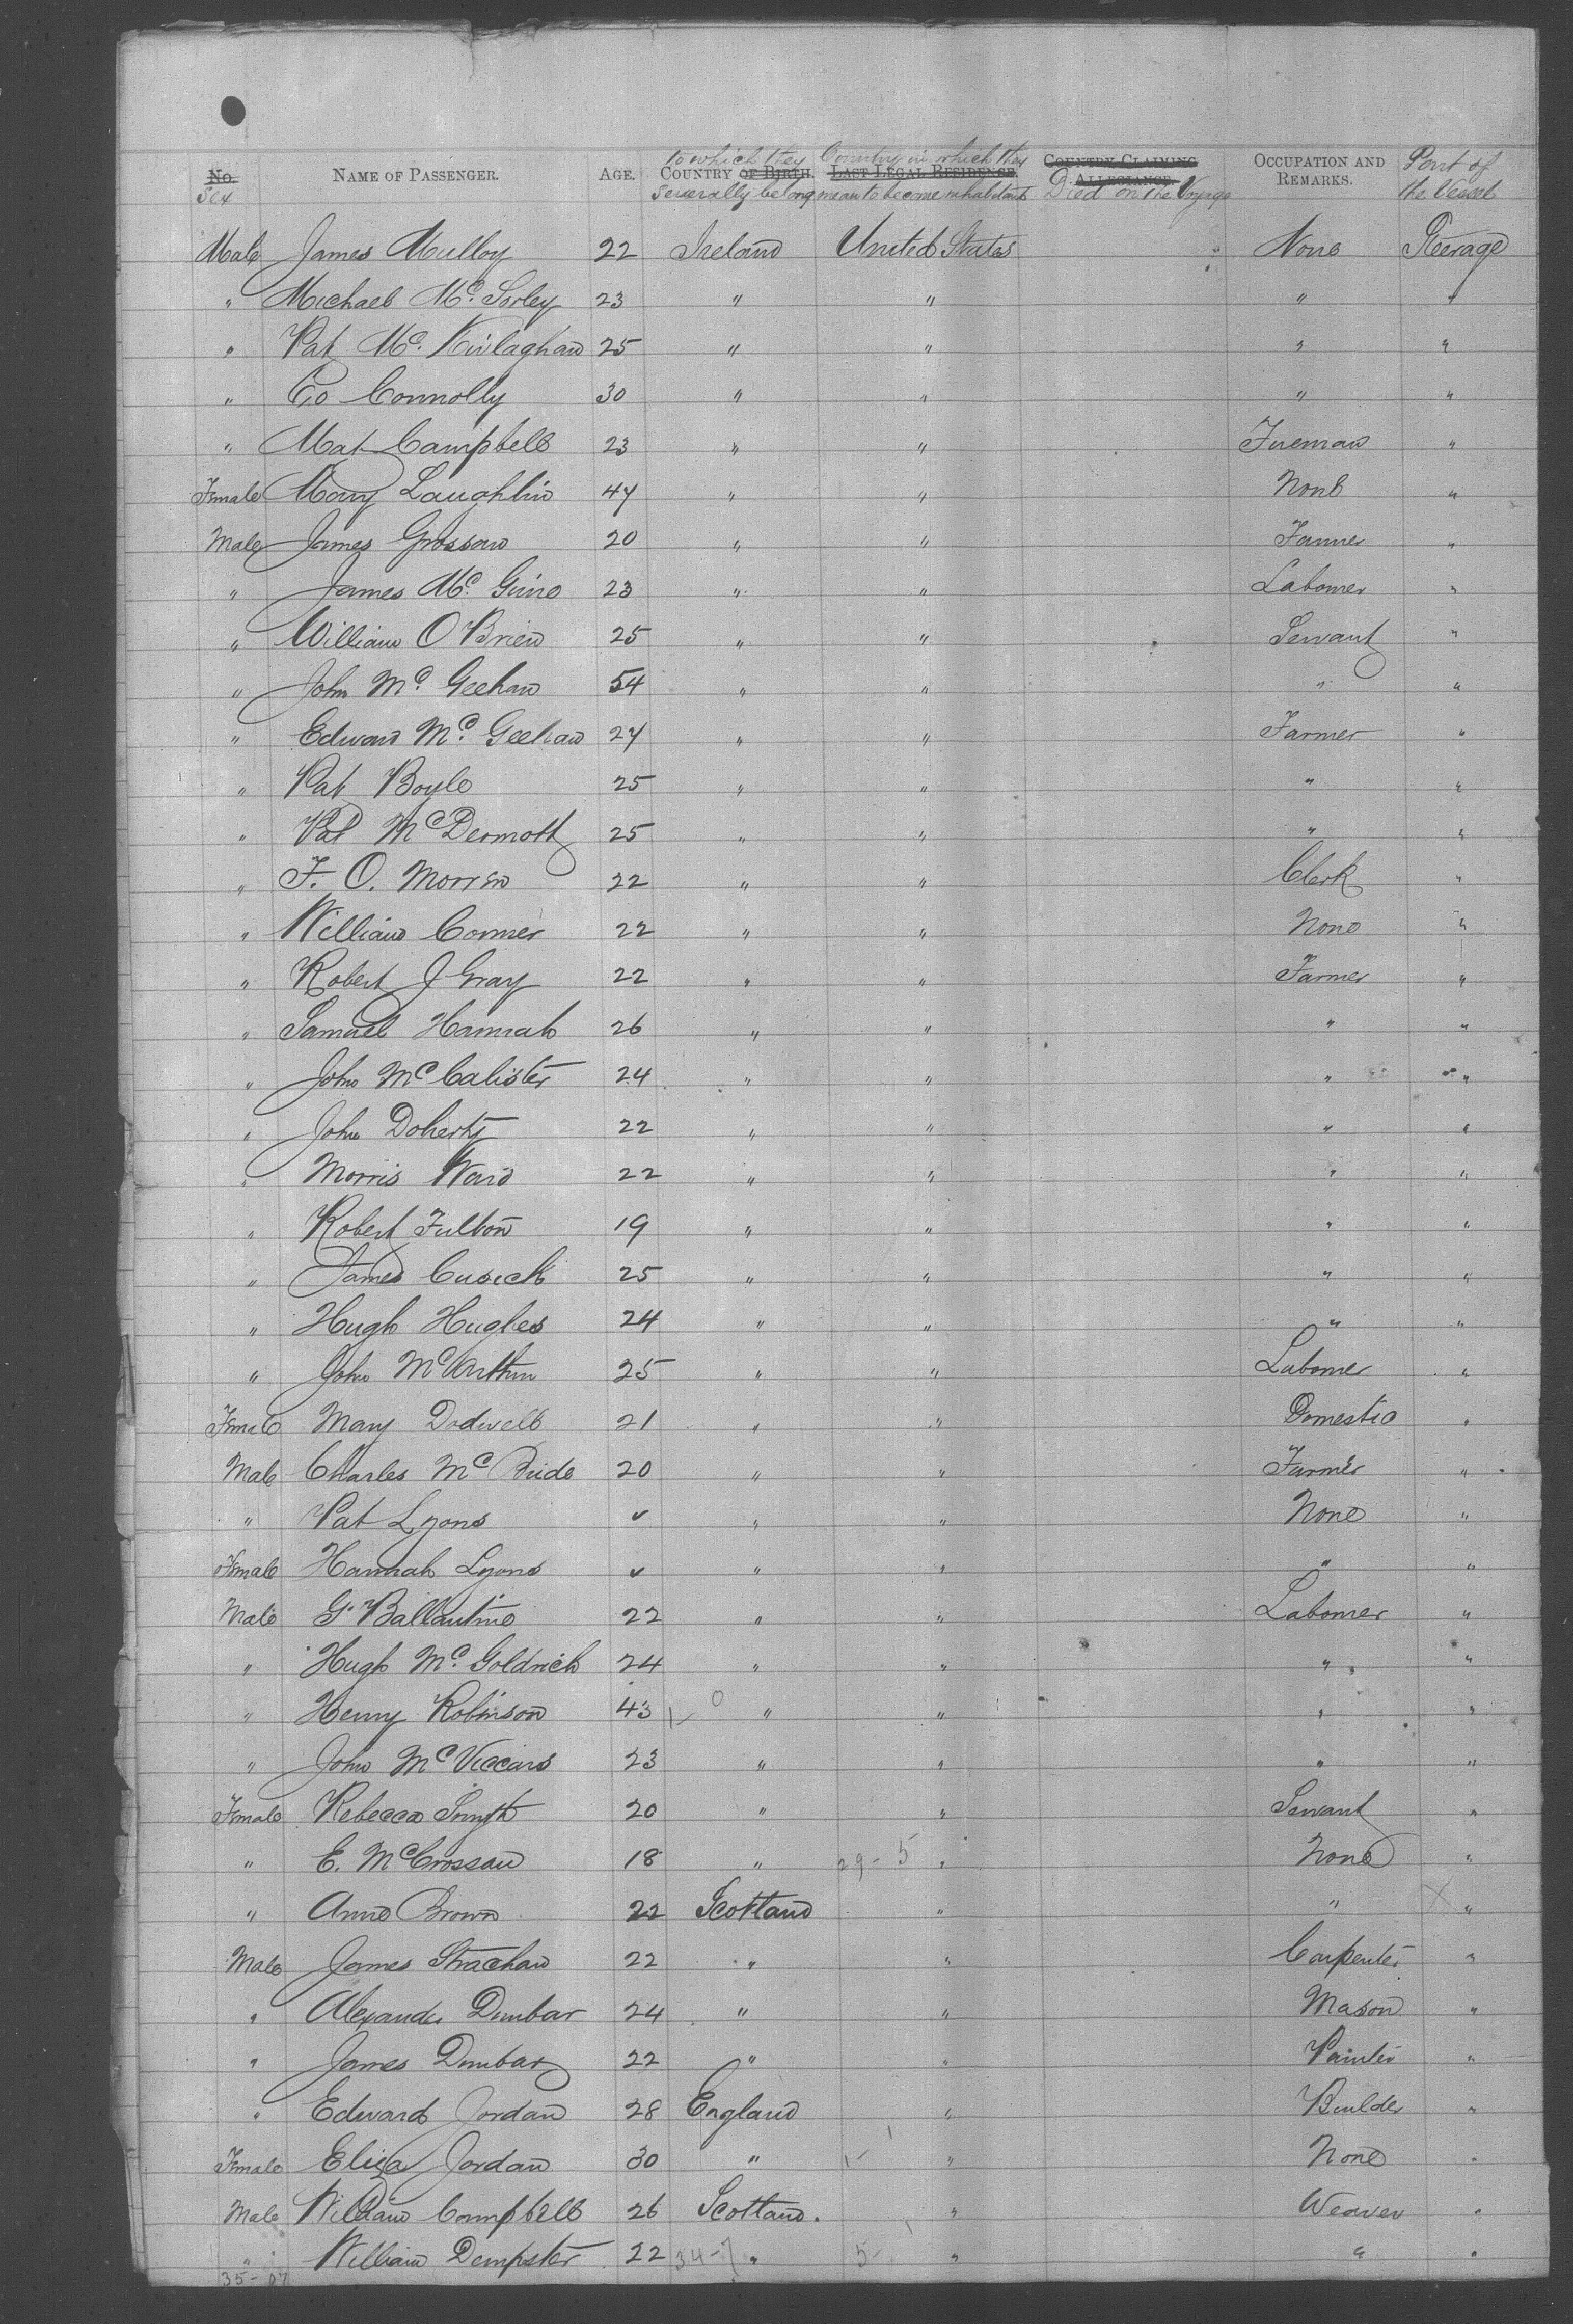 to which they Country in which they
No. NAME OF PASSENGER. AGE. COUNTRY OF BIRTH. LAST LEGAL RESIDENCE. COUNTRY CLAIMING ALLEGIANCE. OCCUPATION AND REMARKS. Part of
Sex severally belong mean to become inhabitants Died on the Voyage the Vessel
Male James Mulloy 22 Ireland United States None Steerage
" Michael Mc. Sorley 23 " " " "
" Pat Mc. Kinlaghan 25 " " " "
" Co Connolly 30 " " " "
" Mat Campbell 23 " " Fireman "
Female Mary Laughlin 47 " " None "
Male James Grossan 20 " " Farmer "
" James Mc. Guire 23 " " Labourer "
" William O'Brien 25 " " Servant "
" John Mc. Geehan 54 " " " "
" Edward Mc. Geehan 27 " " Farmer "
" Pat Boyle 25 " " " "
" Pat McDermott 25 " " " "
" F. O. Morren 22 " " Clerk "
" William Conner 22 " " None "
" Robert J Gray 22 " " Farmer "
" Samuel Hannah 26 " " " "
" John McCalister 24 " " " "
" John Doherty 22 " " " "
" Morris Ward 22 " " " "
" Robert Fulton 19 " " " "
" James Cusick 25 " " " "
" Hugh Hughes 24 " " " "
" John McArthur 25 " " Labourer "
Female Mary Dodwell 21 " " Domestic "
Male Charles McBride 20 " " Farmer "
" Pat Lyons " " None "
Female Hannah Lyons " " " "
Male G. Ballantine 22 " " Labourer "
" Hugh Mc. Goldrich 24 " " " "
" Henry Robinson 43 " " " "
" John McViccars 23 " " " "
Female Rebecca Smyth 20 " " Servant "
" E. McCrossan 18 " 29-5 " None "
" Anne Brown 22 Scotland " " "
Male James Strachan 22 " " Carpenter "
" Alexander Dunbar 24 " " Mason "
" James Dunbar 22 " " Painter "
" Edward Jordan 28 England " Builder "
Female Eliza Jordan 30 " " None "
Male William Campbell 26 Scotland. " Weaver "
" William Dempster 22 34-7 " 5- " " "
35-07